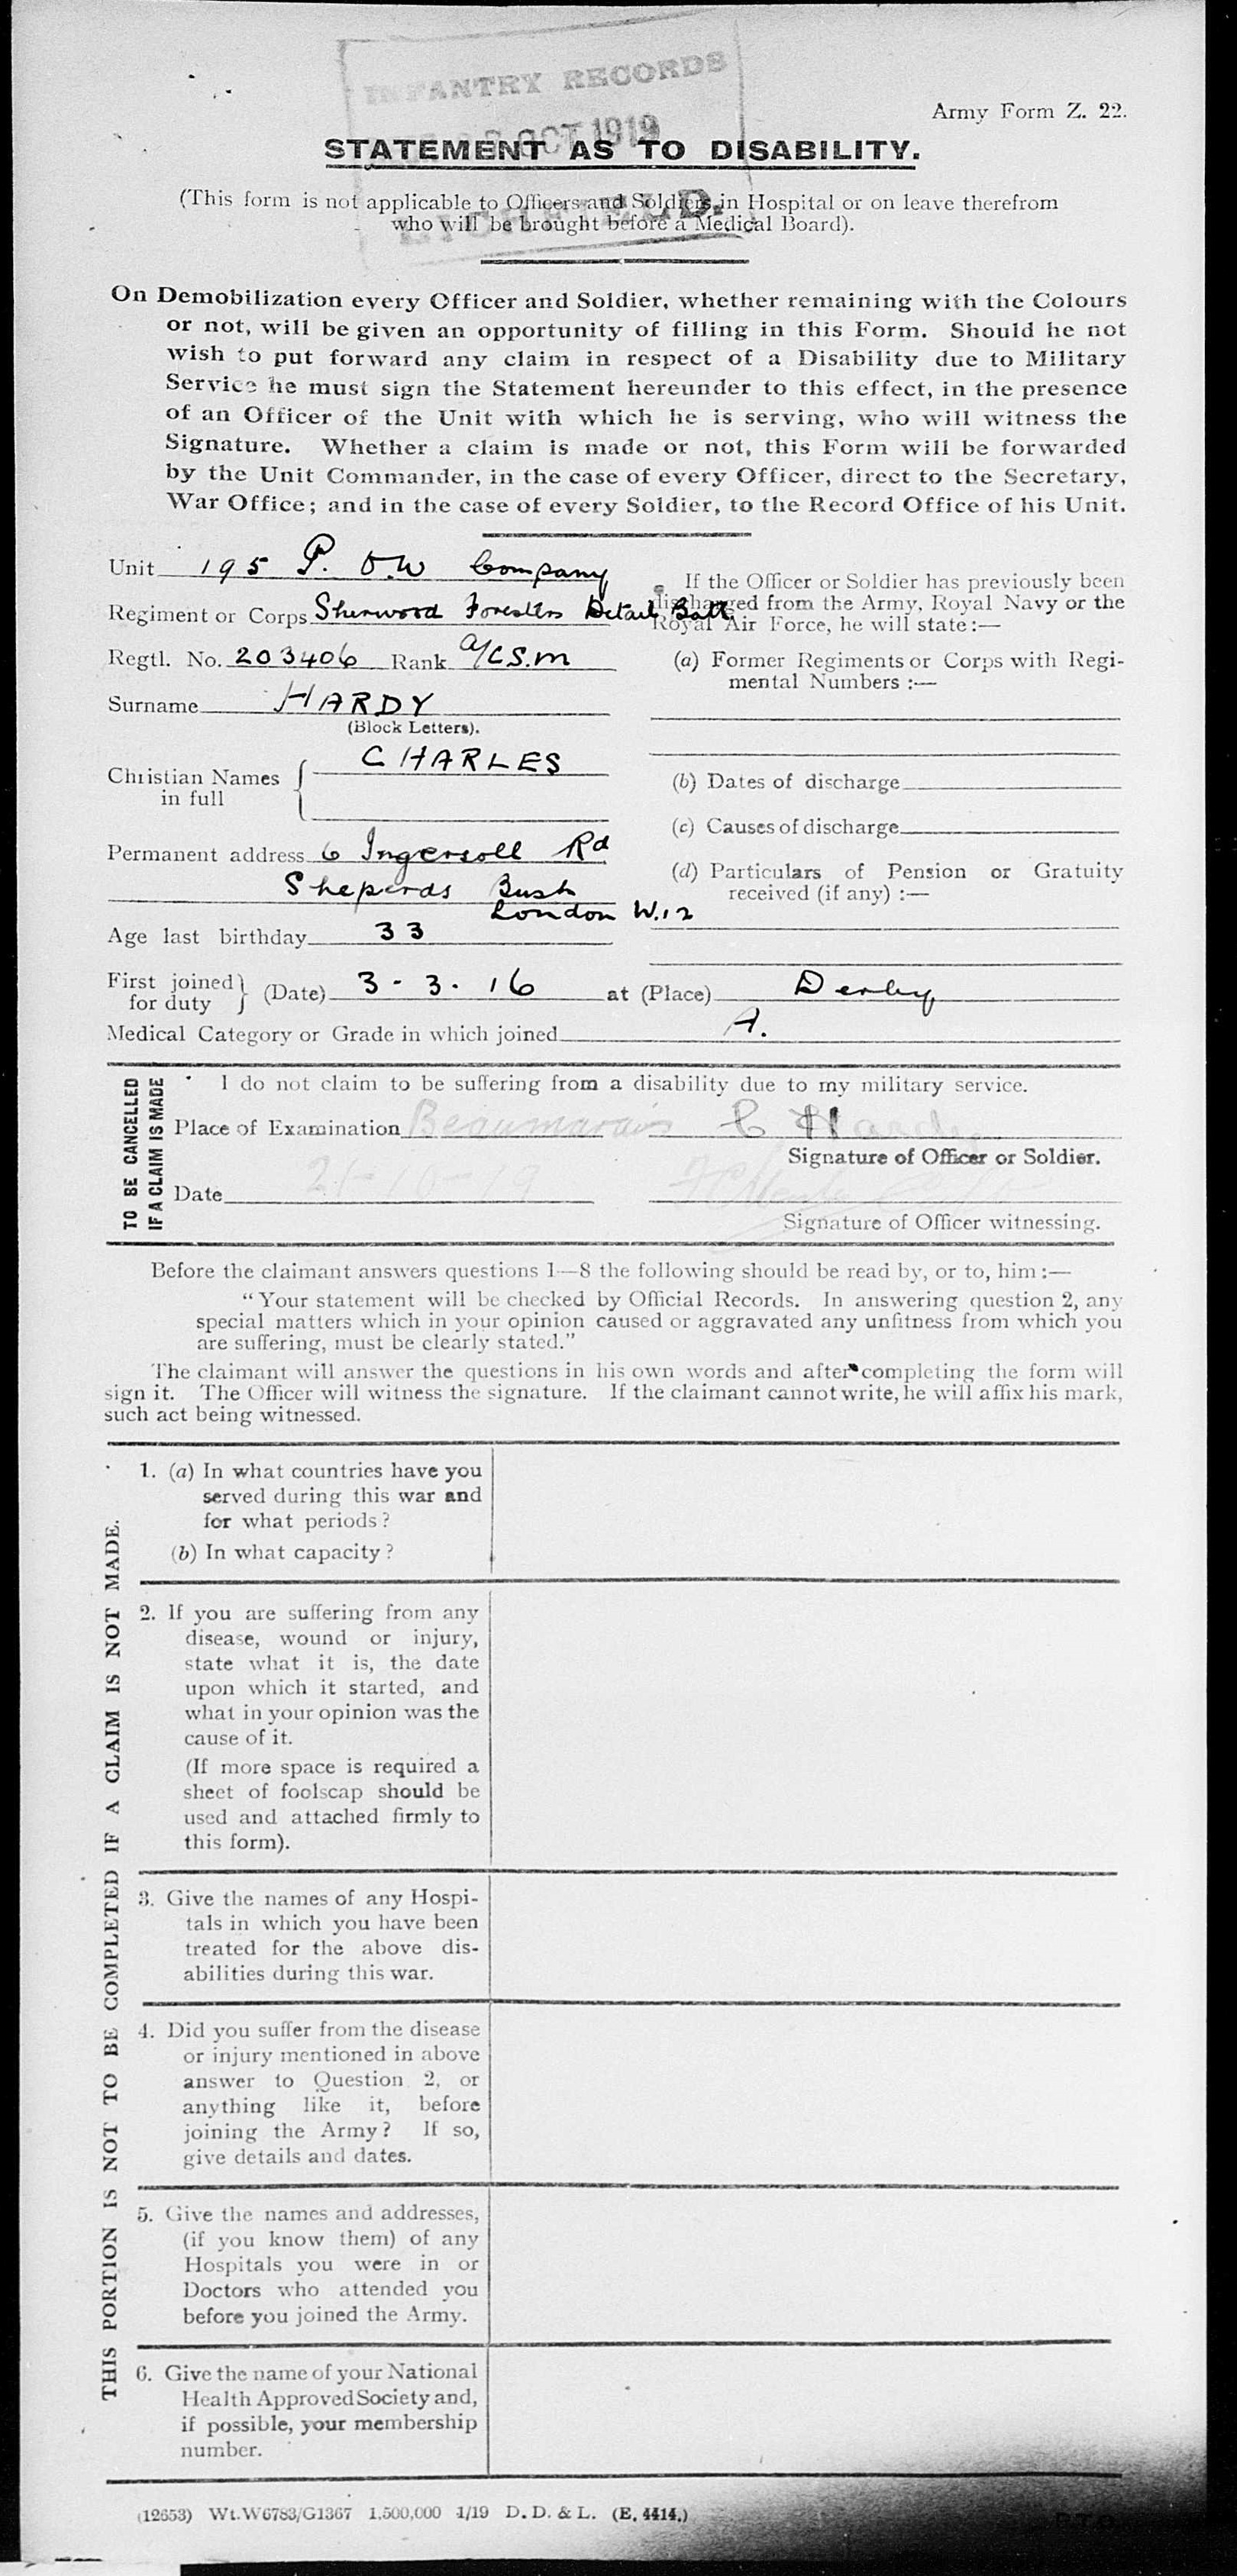 INFANTRY RECORDS
OCT 1919
LICHFIELD.
Army Form Z. 22.
STATEMENT AS TO DISABILITY.
(This form is not applicable to Officers and Soldiers in Hospital or on leave therefrom
who will be brought before a Medical Board).
On Demobilization every Officer and Soldier, whether remaining with the Colours
or not, will be given an opportunity of filling in this Form. Should he not
wish to put forward any claim in respect of a Disability due to Military
Service he must sign the Statement hereunder to this effect, in the presence
of an Officer of the Unit with which he is serving, who will witness the
Signature. Whether a claim is made or not, this Form will be forwarded
by the Unit Commander, in the case of every Officer, direct to the Secretary,
War Office; and in the case of every Soldier, to the Record Office of his Unit.
Unit 195 P. O.W Company
Regiment or Corps Sherwood Foresters Detail Batt.
Regtl. No. 203406 Rank A/C.S.M
Surname HARDY
(Block Letters).
Christian Names in full CHARLES
Permanent address 6 Ingersoll Rd
Sheperds Bush
London W.12
Age last birthday 33
If the Officer or Soldier has previously been
discharged from the Army, Royal Navy or the
Royal Air Force, he will state:—
(a) Former Regiments or Corps with Regi-
mental Numbers :—
(b) Dates of discharge
(c) Causes of discharge
(d) Particulars of Pension or Gratuity
received (if any) :—
First joined for duty } (Date) 3 - 3 . 16 at (Place) Derby
Medical Category or Grade in which joined A.
TO BE CANCELLED
IF A CLAIM IS MADE
I do not claim to be suffering from a disability due to my military service.
Place of Examination Beaumarais C Hardy
Signature of Officer or Soldier.
Date 21-10-19
Signature of Officer witnessing.
Before the claimant answers questions 1—8 the following should be read by, or to, him :—
"Your statement will be checked by Official Records. In answering question 2, any
special matters which in your opinion caused or aggravated any unfitness from which you
are suffering, must be clearly stated."
The claimant will answer the questions in his own words and after completing the form will
sign it. The Officer will witness the signature. If the claimant cannot write, he will affix his mark,
such act being witnessed.
THIS PORTION IS NOT TO BE COMPLETED IF A CLAIM IS NOT MADE.
1. (a) In what countries have you
served during this war and
for what periods?
(b) In what capacity?
2. If you are suffering from any
disease, wound or injury,
state what it is, the date
upon which it started, and
what in your opinion was the
cause of it.
(If more space is required a
sheet of foolscap should be
used and attached firmly to
this form).
3. Give the names of any Hospi-
tals in which you have been
treated for the above dis-
abilities during this war.
4. Did you suffer from the disease
or injury mentioned in above
answer to Question 2, or
anything like it, before
joining the Army? If so,
give details and dates.
5. Give the names and addresses,
(if you know them) of any
Hospitals you were in or
Doctors who attended you
before you joined the Army.
6. Give the name of your National
Health Approved Society and,
if possible, your membership
number.
(12653) Wt.W6783/G1367 1,500,000 1/19 D.D. & L. (E. 4414.)